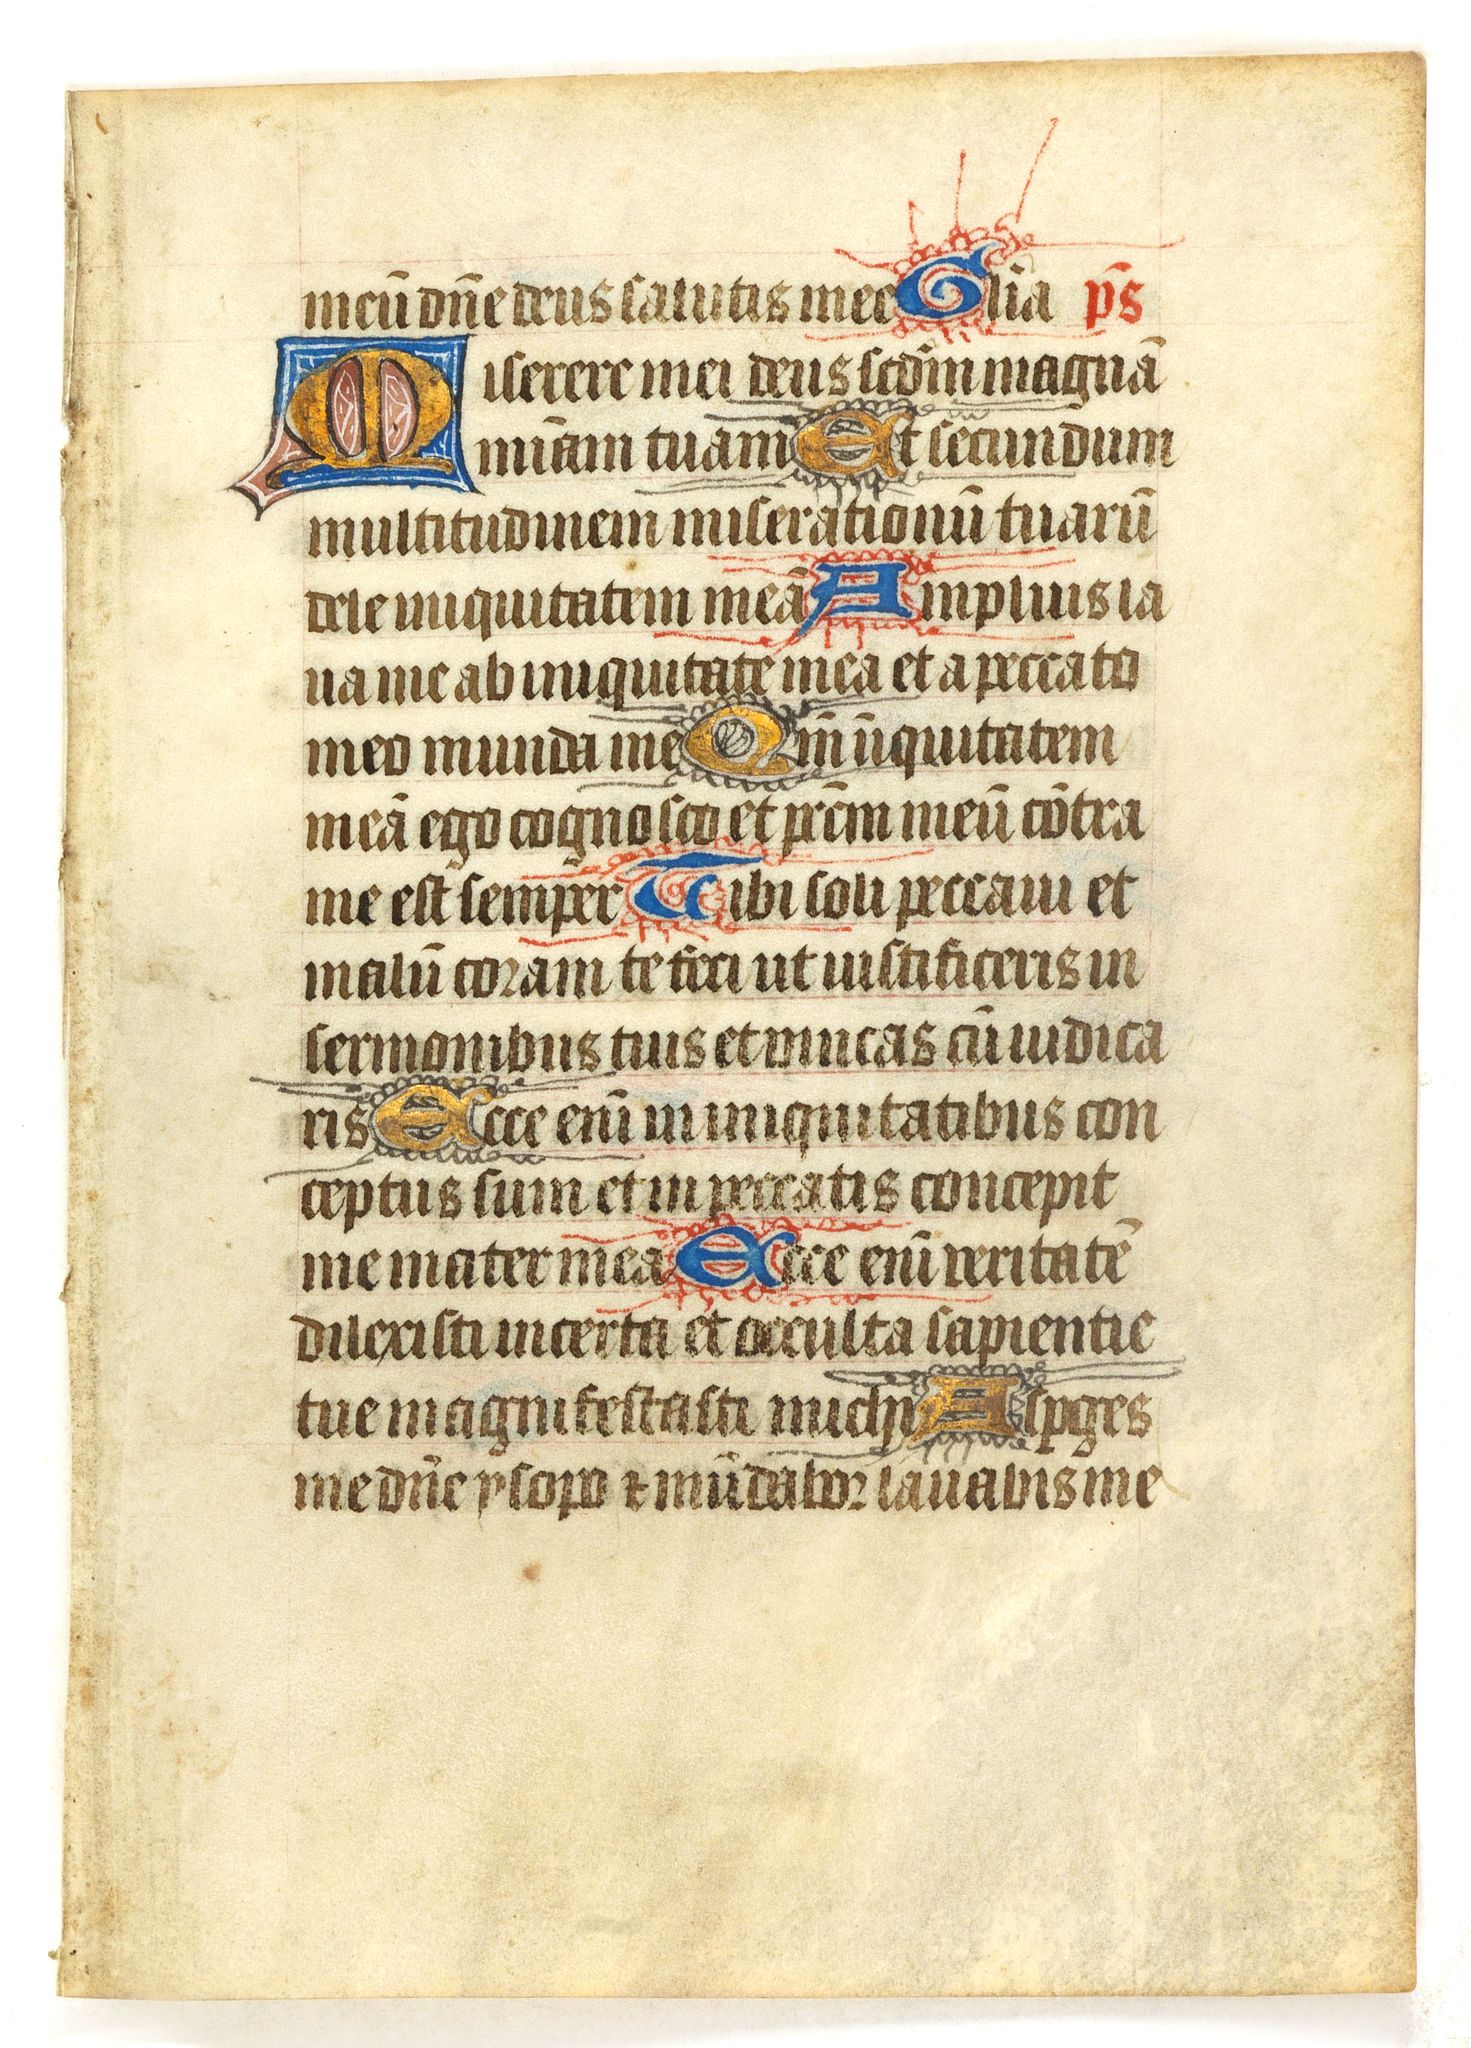 meū dn̄e deus salutis mee Gl̄ia ps̄
Miserere mei deus scd̄m magnā
mīam tuam Et secundum
multitudinem miserationū tuarū
dele iniquitatem meā Amplius la
ua me ab iniquitate mea et a peccato
meo munda me Qm̄ īiquitatem
meā ego cognosco et pccm̄ meū cōtra
me est semper Tibi soli peccaui et
malū coram te feci ut iustificeris in
sermonibus tuis et uincas cū iudica
ris Ecce enī in iniquitatibus con
ceptus sum et in peccatis concepit
me mater mea Ecce enī ueritatē
dilexisti incerta et occulta sapientie
tue magnifestasti michi Asꝑges
me dn̄e ysopo ⁊ mūdabor lauabis me